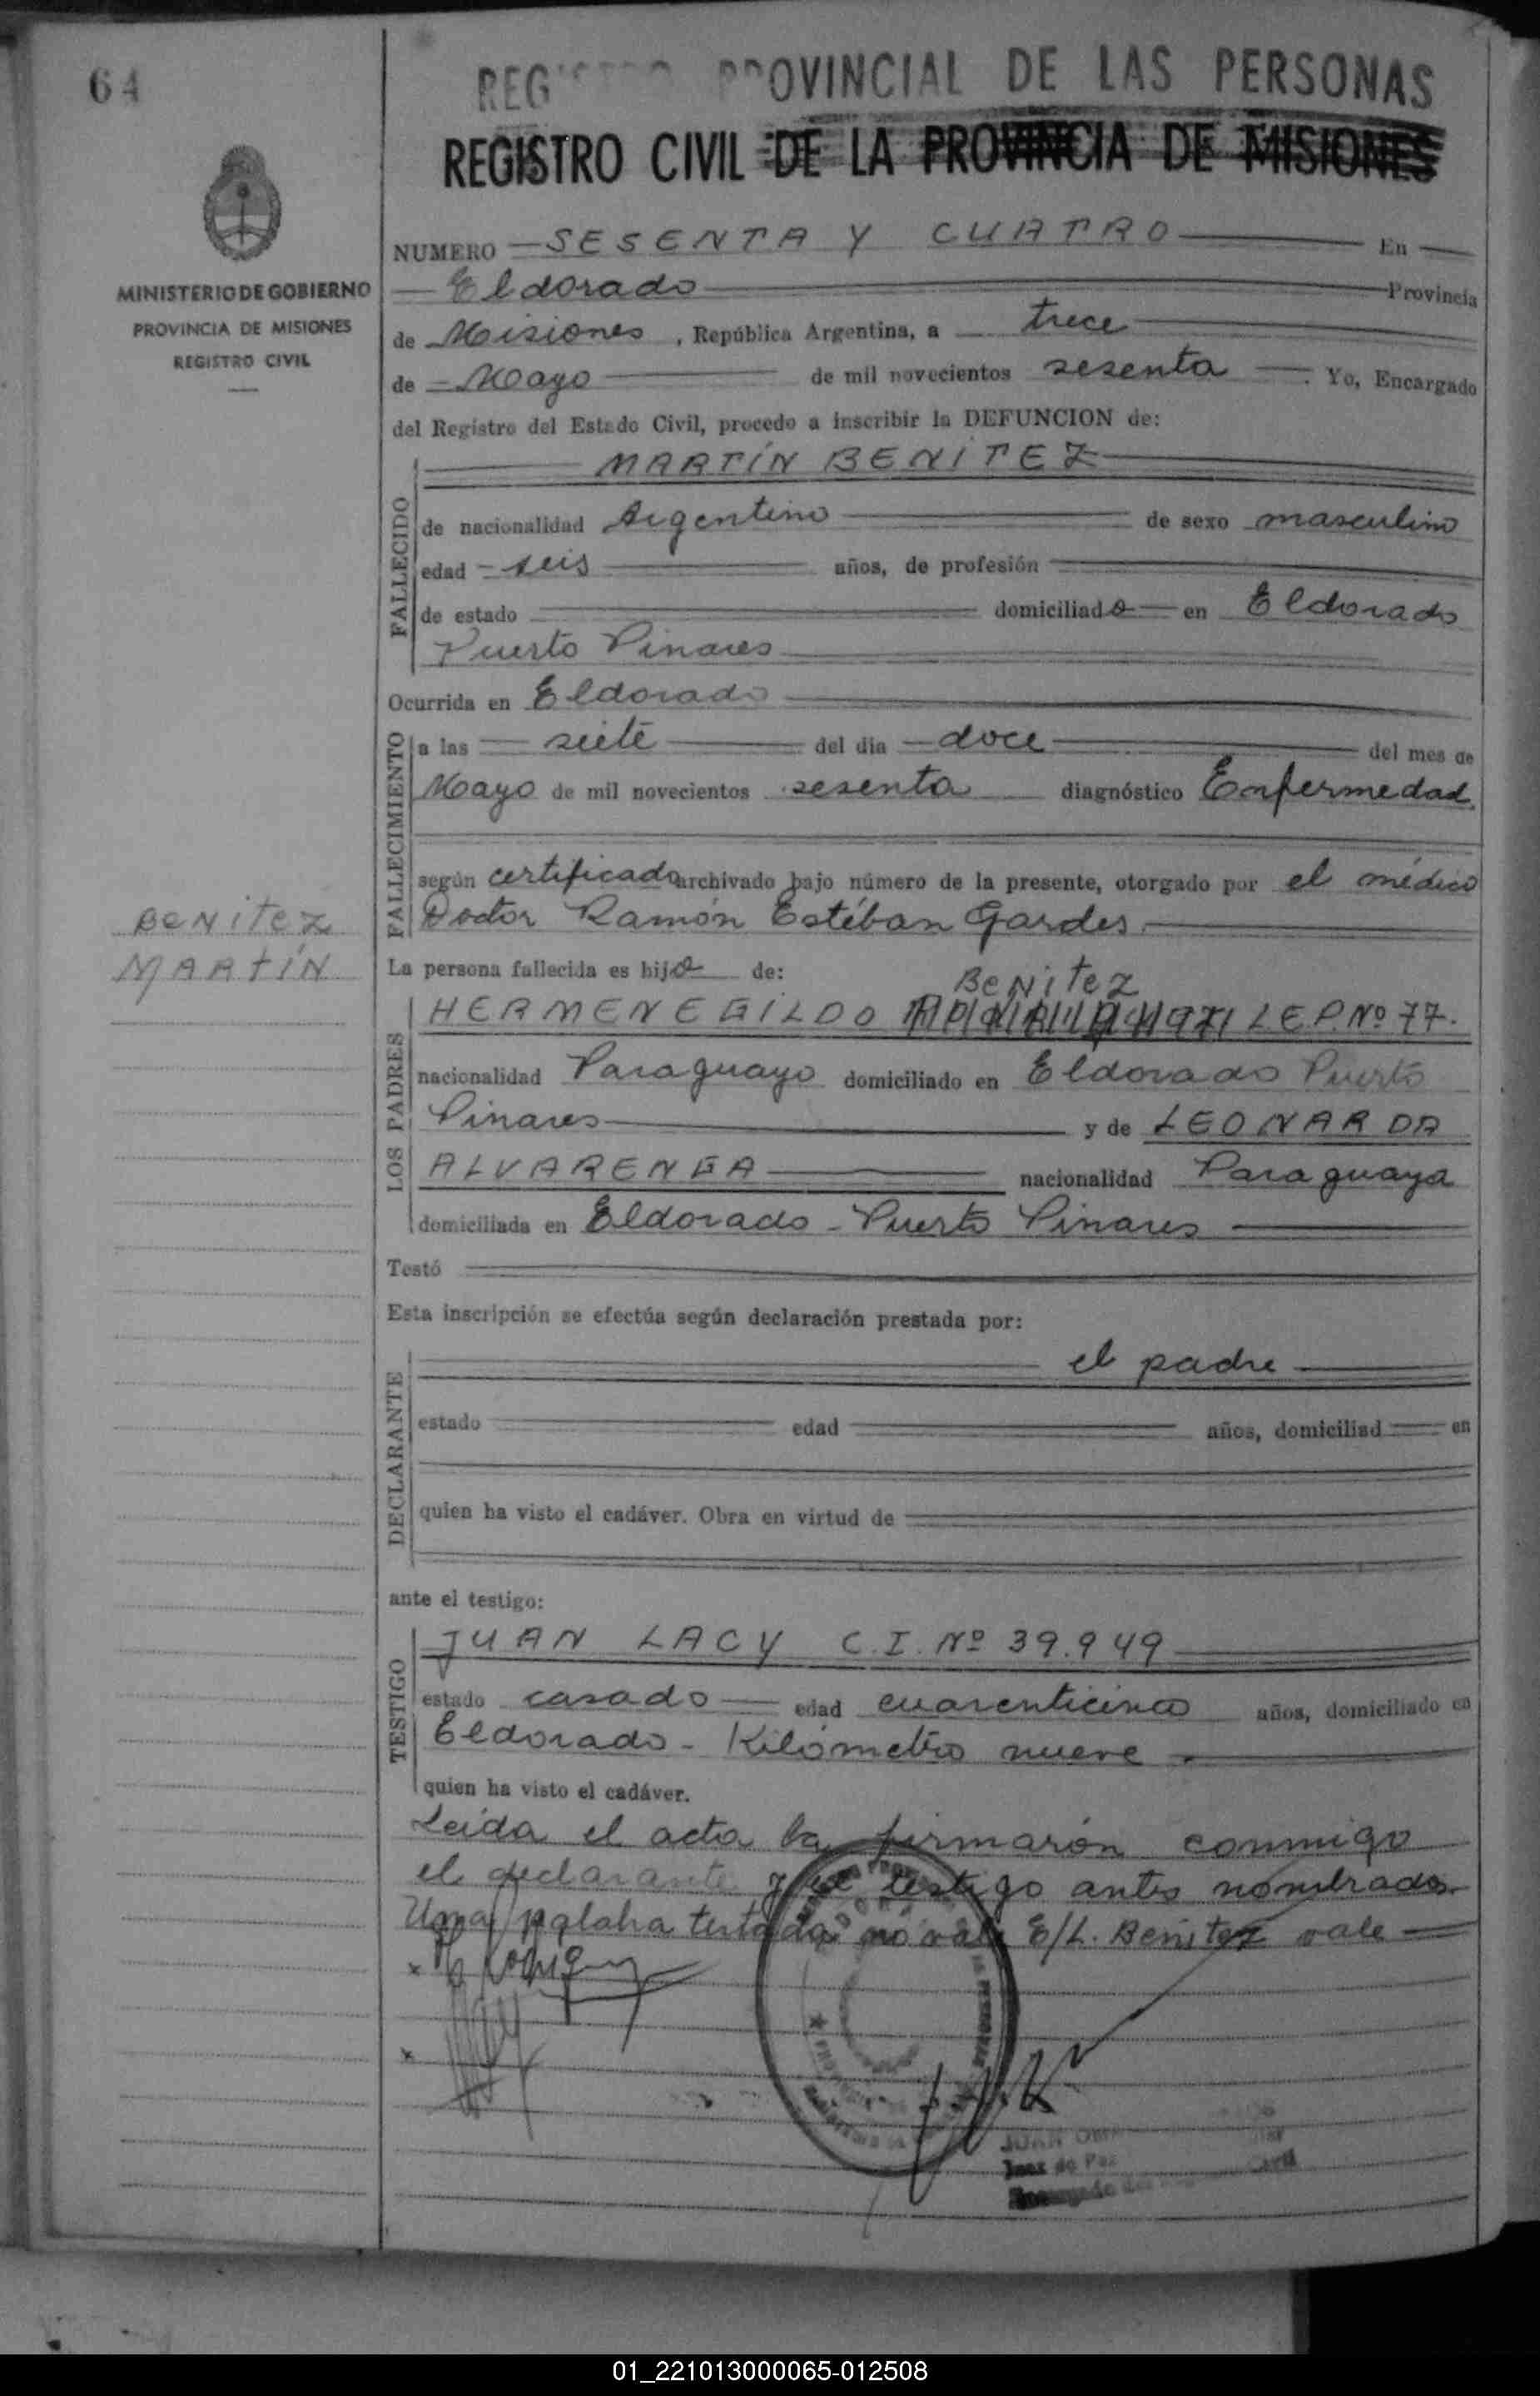 64
REGISTRO PROVINCIAL DE LAS PERSONAS
REGISTRO CIVIL DE LA PROVINCIA DE MISIONES
MINISTERIO DE GOBIERNO
PROVINCIA DE MISIONES
REGISTRO CIVIL
NUMERO SESENTA Y CUATRO En
Eldorado Provincia
de Misiones, República Argentina, a trece
de Mayo de mil novecientos sesenta. Yo, Encargado
del Registro del Estado Civil, procedo a inscribir la DEFUNCION de:
MARTÍN BENÍTEZ
FALLECIDO
de nacionalidad Argentino de sexo masculino
edad seis años, de profesión
de estado domiciliado en Eldorado
Puerto Pinares
Ocurrida en Eldorado
FALLECIMIENTO
a las siete del día doce del mes de
Mayo de mil novecientos sesenta diagnóstico Enfermedad
según certificado archivado bajo número de la presente, otorgado por el médico
Doctor Ramón Estéban Gardes
BENITEZ
MARTÍN
La persona fallecida es hijo de:
Benitez
HERMENEGILDO L E P. Nº 77.
LOS PADRES
nacionalidad Paraguayo domiciliado en Eldorado Puerto
Pinares y de LEONARDA
ALVARENGA nacionalidad Paraguaya
domiciliada en Eldorado - Puerto Pinares
Testó
Esta inscripción se efectúa según declaración prestada por:
el padre
DECLARANTE
estado edad años, domiciliad en
quien ha visto el cadáver. Obra en virtud de
ante el testigo:
TESTIGO
JUAN LACY C. I. Nº 39.949
estado casado edad cuarenticinco años, domiciliado en
Eldorado - Kilómetro nueve
quien ha visto el cadáver.
Leída el acta la firmarón conmigo
el declarante y el testigo antes nombrados.
Una palabra testada no vale E/L. Benitez vale
JUAN
Juez de Paz
Encargado del Civil
01_221013000065-012508